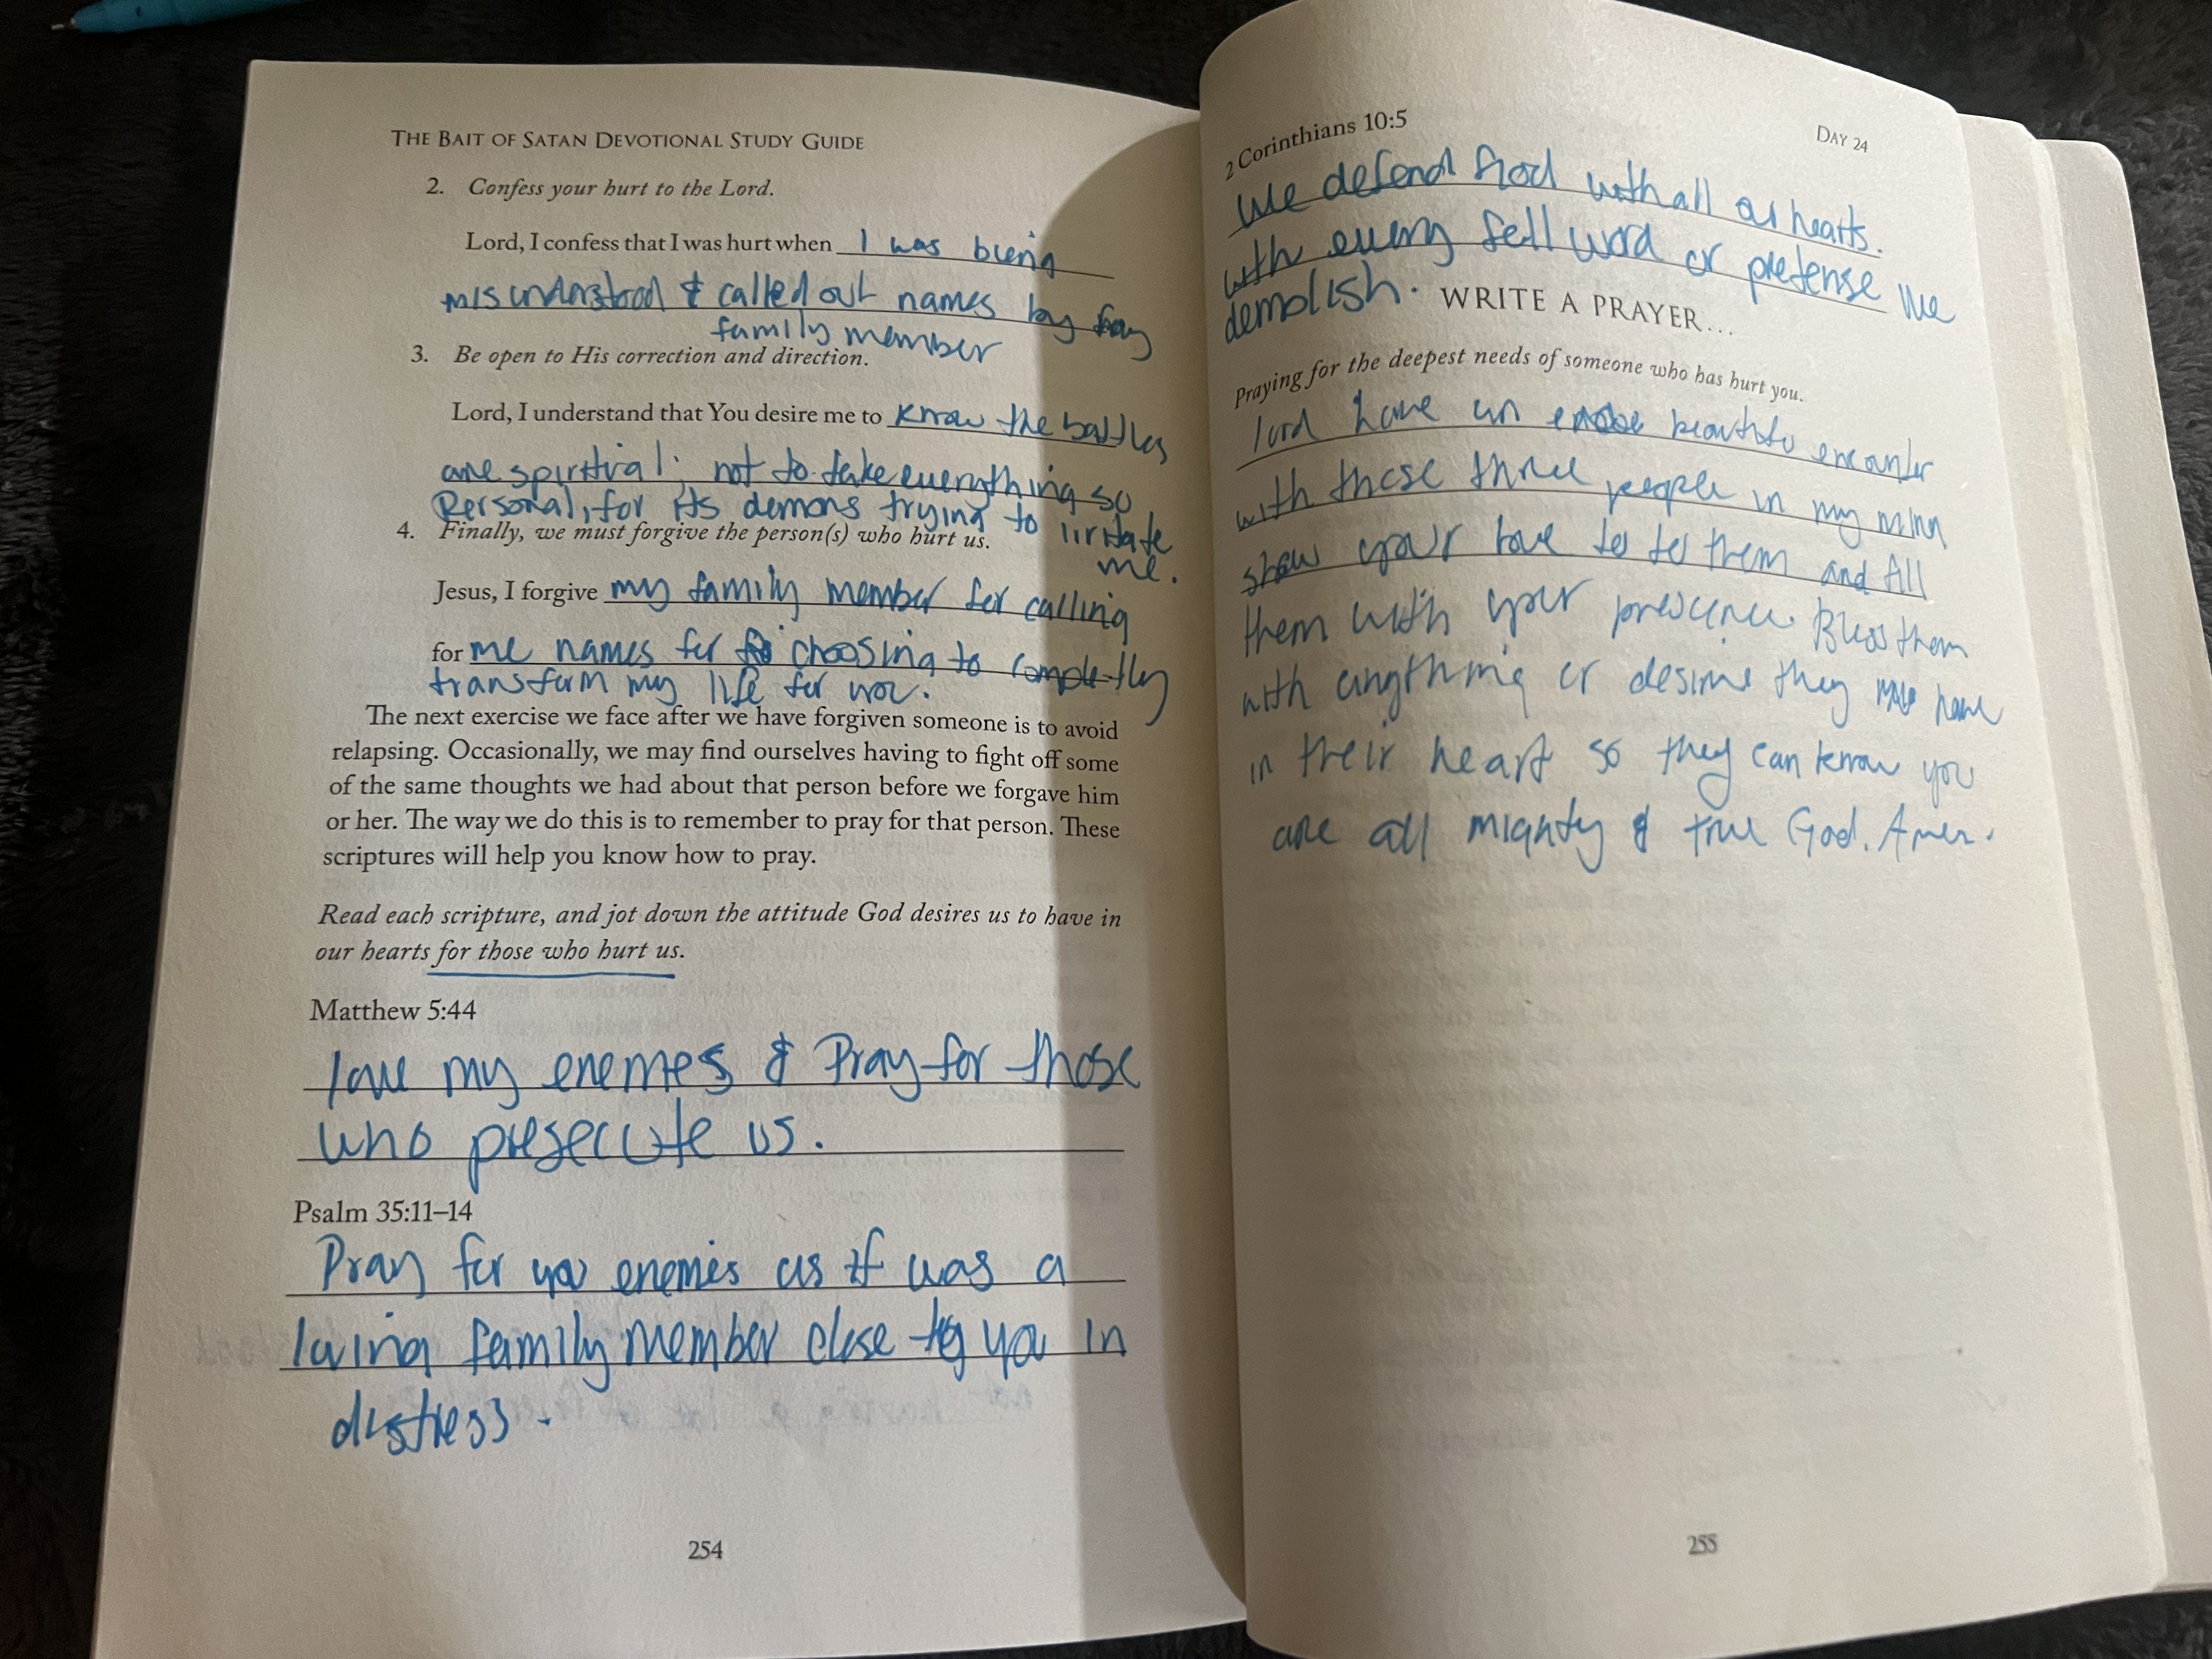 THE BAIT OF SATAN DEVOTIONAL STUDY GUIDE
2. Confess your hurt to the Lord.
Lord, I confess that I was hurt when I was being
misunderstood & called out names by
family member
3. Be open to His correction and direction.
Lord, I understand that You desire me to know the battles
are spirtial; not to take everything so
Personal, for its demons trying to irritate
me.
4. Finally, we must forgive the person(s) who hurt us.
Jesus, I forgive my family member for calling
for me names for choosing to completly
transform my life for you.
The next exercise we face after we have forgiven someone is to avoid
relapsing. Occasionally, we may find ourselves having to fight off some
of the same thoughts we had about that person before we forgave him
or her. The way we do this is to remember to pray for that person. These
scriptures will help you know how to pray.
Read each scripture, and jot down the attitude God desires us to have in
our hearts for those who hurt us.
Matthew 5:44
love my enemies & Pray for those
who presecute us.
Psalm 35:11–14
Pray for you enemies as if was a
loving family member close to you in
distress.
254
2 Corinthians 10:5
DAY 24
We defend God with all our hearts.
with every word or pretense we
demolish.
WRITE A PRAYER…
Praying for the deepest needs of someone who has hurt you.
lord have an encounter
with these three people in my mind
show your love to to them and fill
them with your presence. Bless them
with anything or desire they have
in their heart so they can know you
are all mighty & true God. Amen.
255